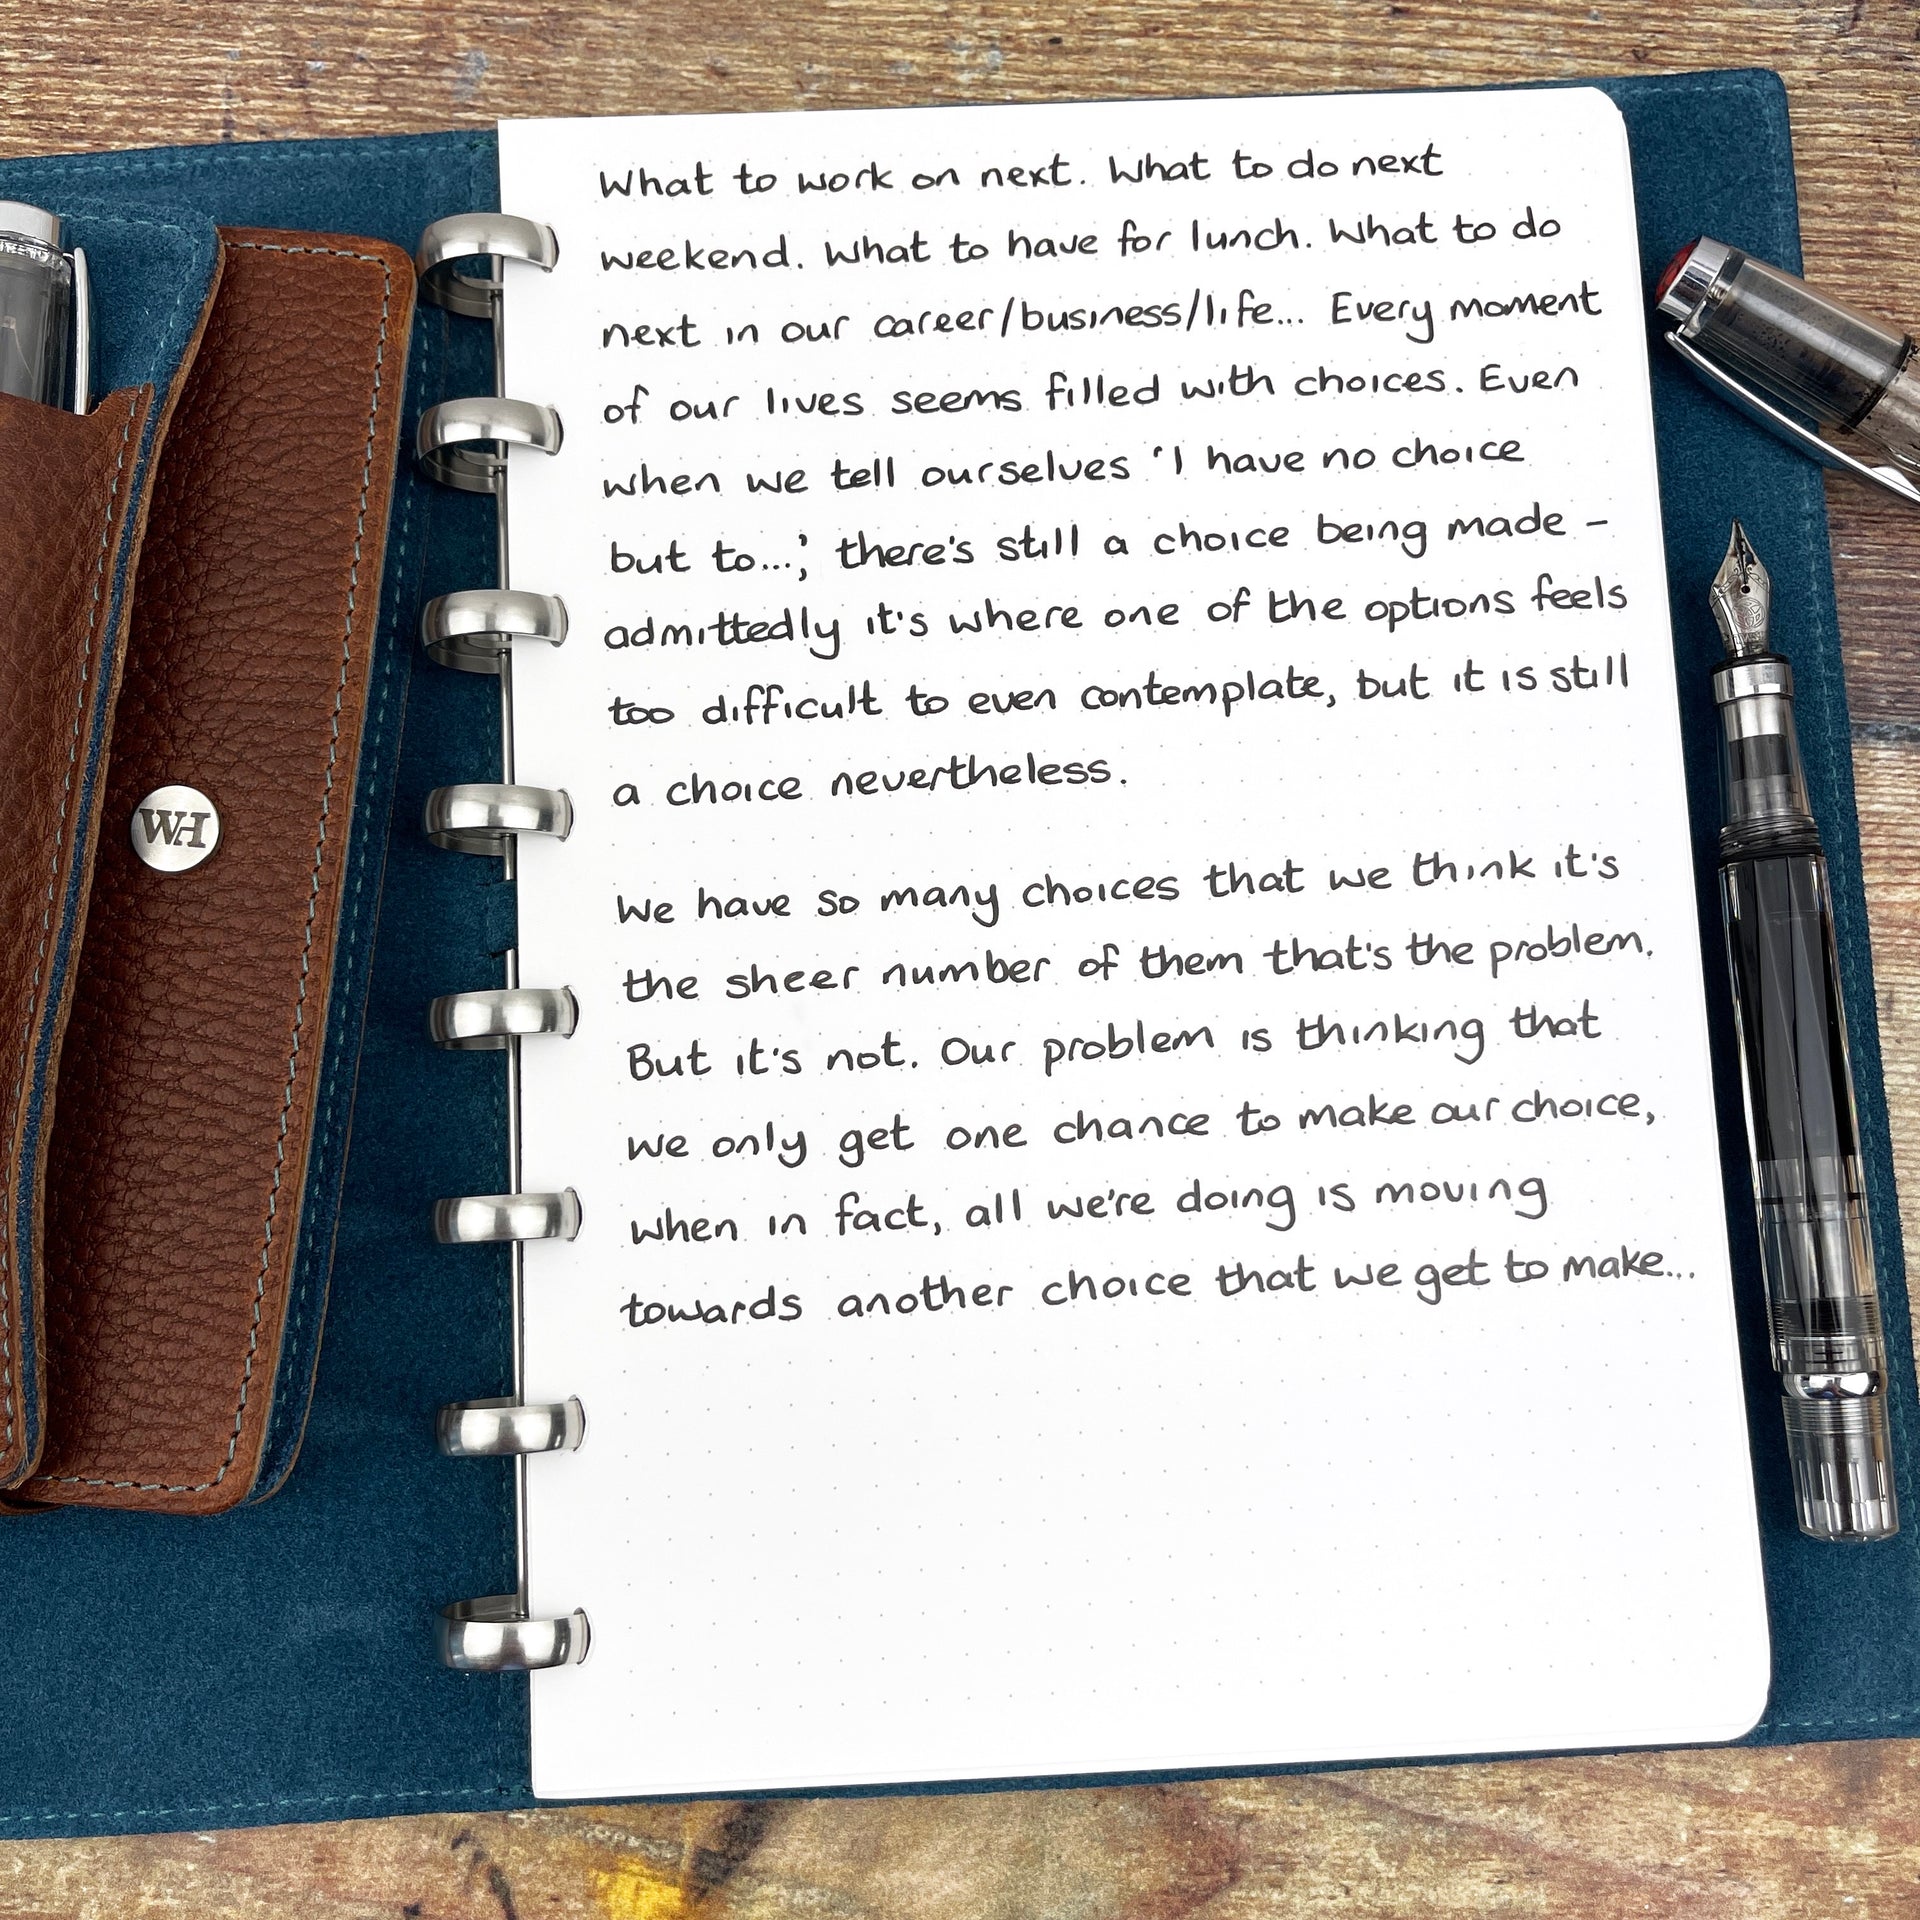 WH
What to work on next. What to do next
weekend. What to have for lunch. What to do
next in our career/business/life... Every moment
of our lives seems filled with choices. Even
when we tell ourselves 'I have no choice
but to...', there's still a choice being made –
admittedly it's where one of the options feels
too difficult to even contemplate, but it is still
a choice nevertheless.
We have so many choices that we think it's
the sheer number of them that's the problem.
But it's not. Our problem is thinking that
we only get one chance to make our choice,
when in fact, all we're doing is moving
towards another choice that we get to make...